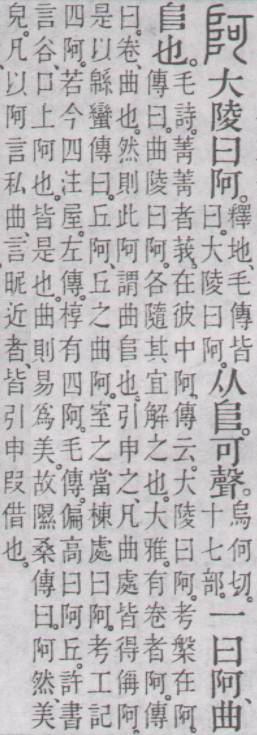 阿 大陵曰阿。釋地、毛傳皆曰。大陵曰阿。从𨸏。可聲。烏何切。十七部。一曰阿。曲
𨸏也。毛詩。菁菁者莪。在彼中阿。傳云。大陵曰阿。考槃在阿。
傳曰。曲陵曰阿。各隨其宜解之也。大雅。有卷者阿。傳
曰。卷、曲也。然則此阿謂曲𨸏也。引申之、凡曲處皆得偁阿。
是以緜蠻傳曰。丘阿、丘之曲阿。室之當棟處曰阿。考工記
四阿。若今四注屋。左傳。椁有四阿。毛傳。偏高曰阿丘。許書
言谷、口上阿也。皆是也。曲則易爲美。故隰桑傳曰。阿然、美
皃。凡以阿言私曲、言昵近者、皆引申叚借也。